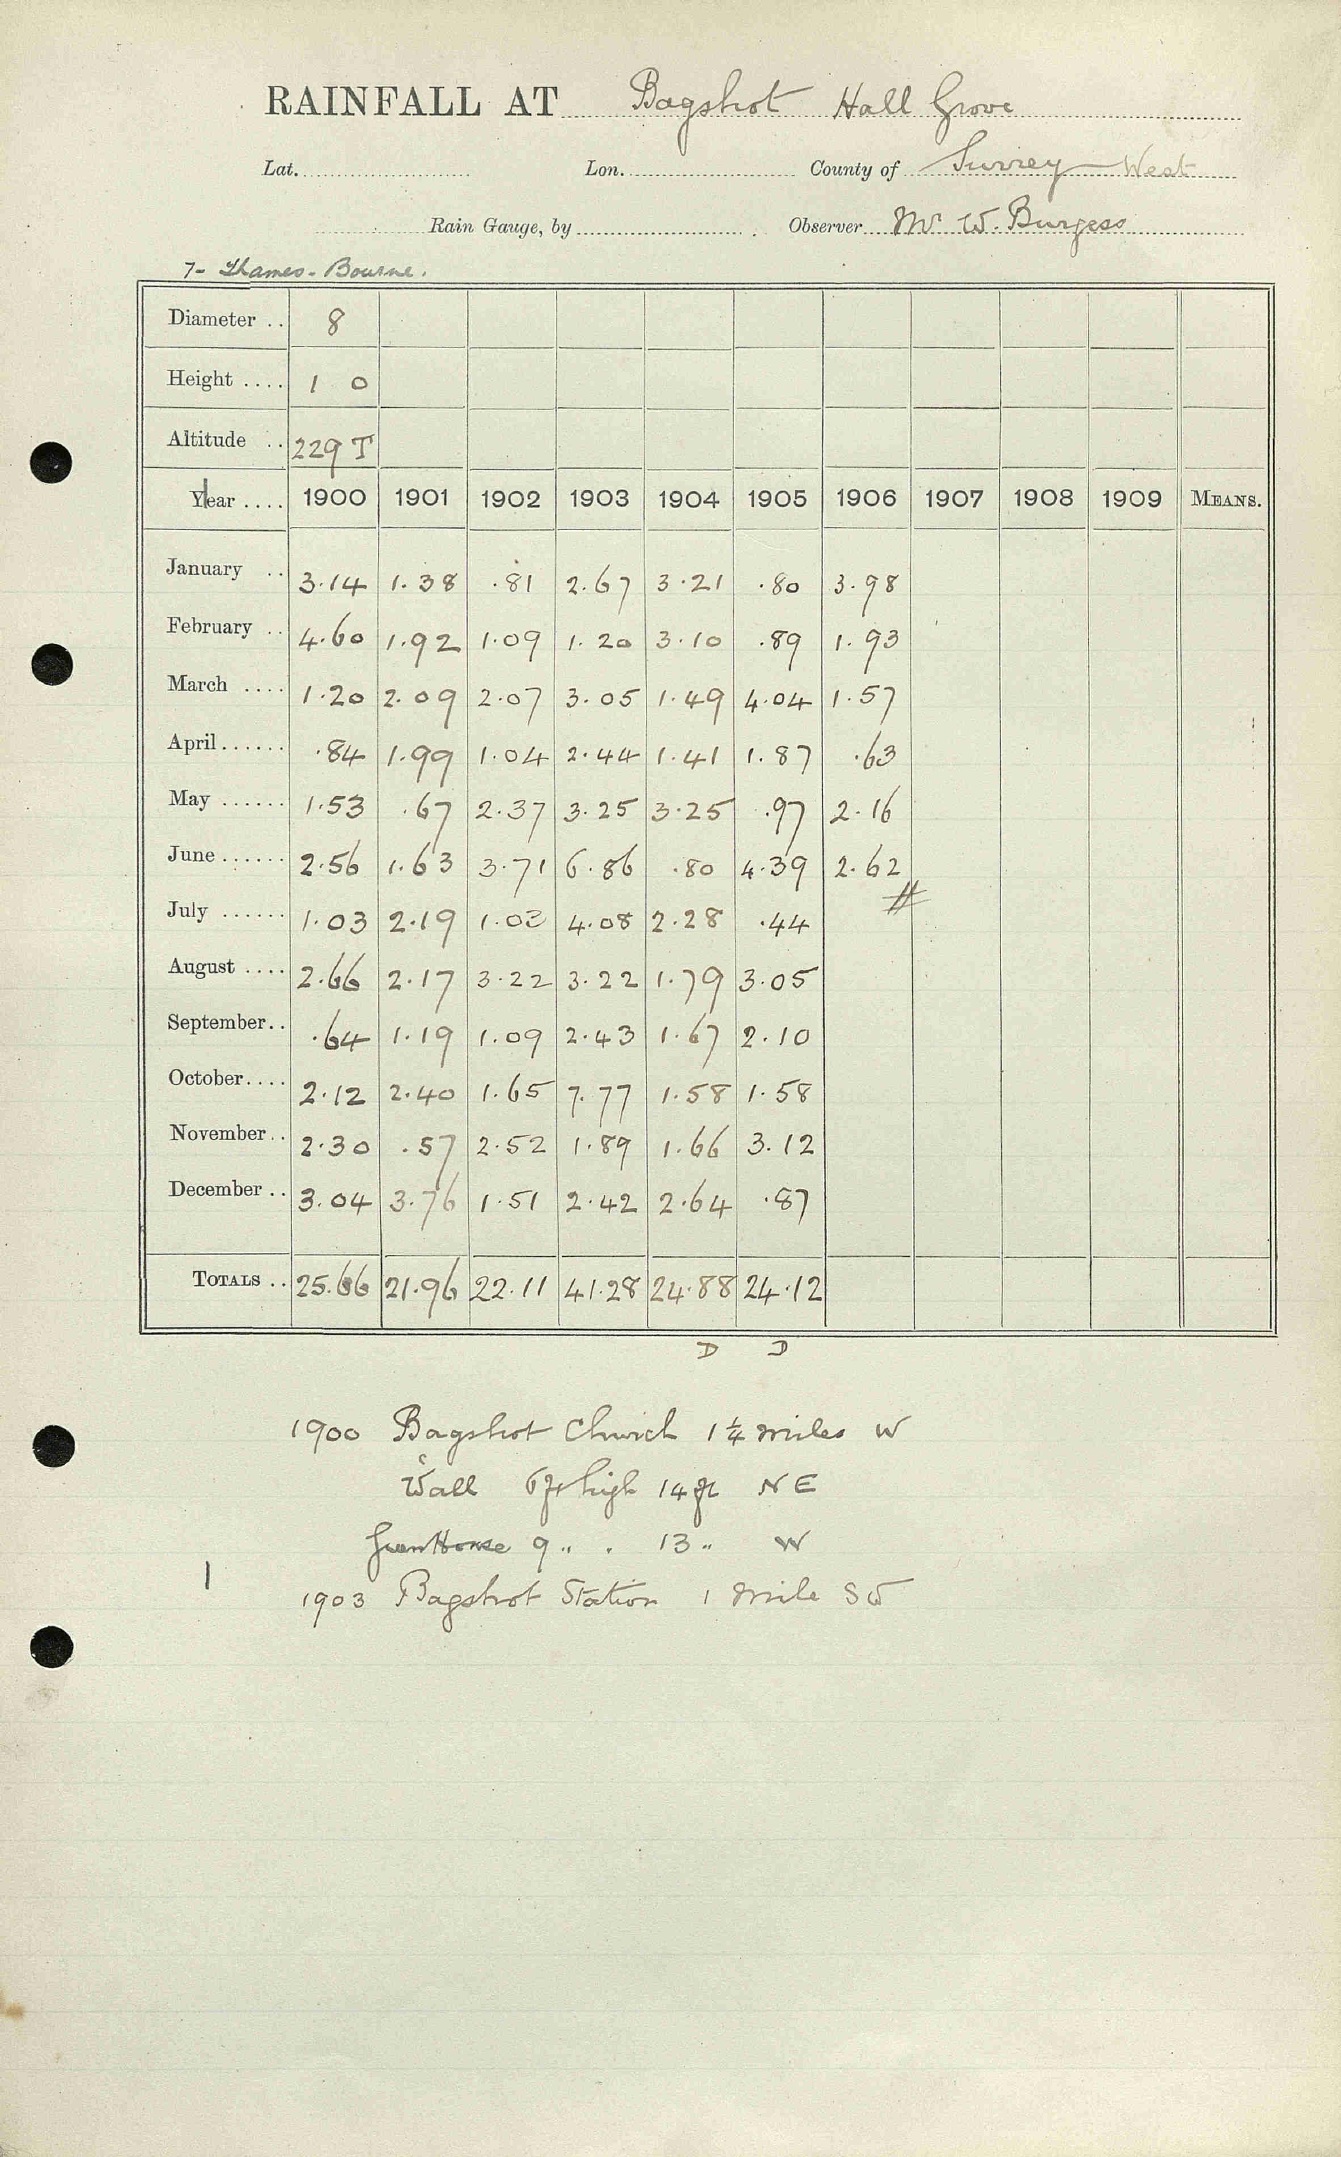 RAINFALL AT Bagshot Hall Grove
Lat. Lon. County of Surrey West
Rain Gauge, by Observer Mr W. Burgess
7- Thames - Bourne.
Diameter .. 8
Height .... 1 0
Altitude .. 229 T
Year .... 1900 1901 1902 1903 1904 1905 1906 1907 1908 1909 MEANS.
January .. 3.14 1.38 .81 2.67 3.21 .80 3.98
February .. 4.60 1.92 1.09 1.20 3.10 .89 1.93
March .... 1.20 2.09 2.07 3.05 1.49 4.04 1.57
April ...... .84 1.99 1.04 2.44 1.41 1.87 .63
May ...... 1.53 .67 2.37 3.25 3.25 .97 2.16
June ...... 2.56 1.63 3.71 6.86 .80 4.39 2.62
July ...... 1.03 2.19 1.03 4.08 2.28 .44
August .... 2.66 2.17 3.22 3.22 1.79 3.05
September.. .64 1.19 1.09 2.43 1.67 2.10
October.... 2.12 2.40 1.65 7.77 1.58 1.58
November.. 2.30 .57 2.52 1.89 1.66 3.12
December .. 3.04 3.76 1.51 2.42 2.64 .87
TOTALS .. 25.66 21.96 22.11 41.28 24.88 24.12
D D
1900 Bagshot Church 1¼ miles W
Wall 6ft high 14 ft NE
GreenHouse 9 " . 13 " W
1903 Bagshot Station 1 mile SW